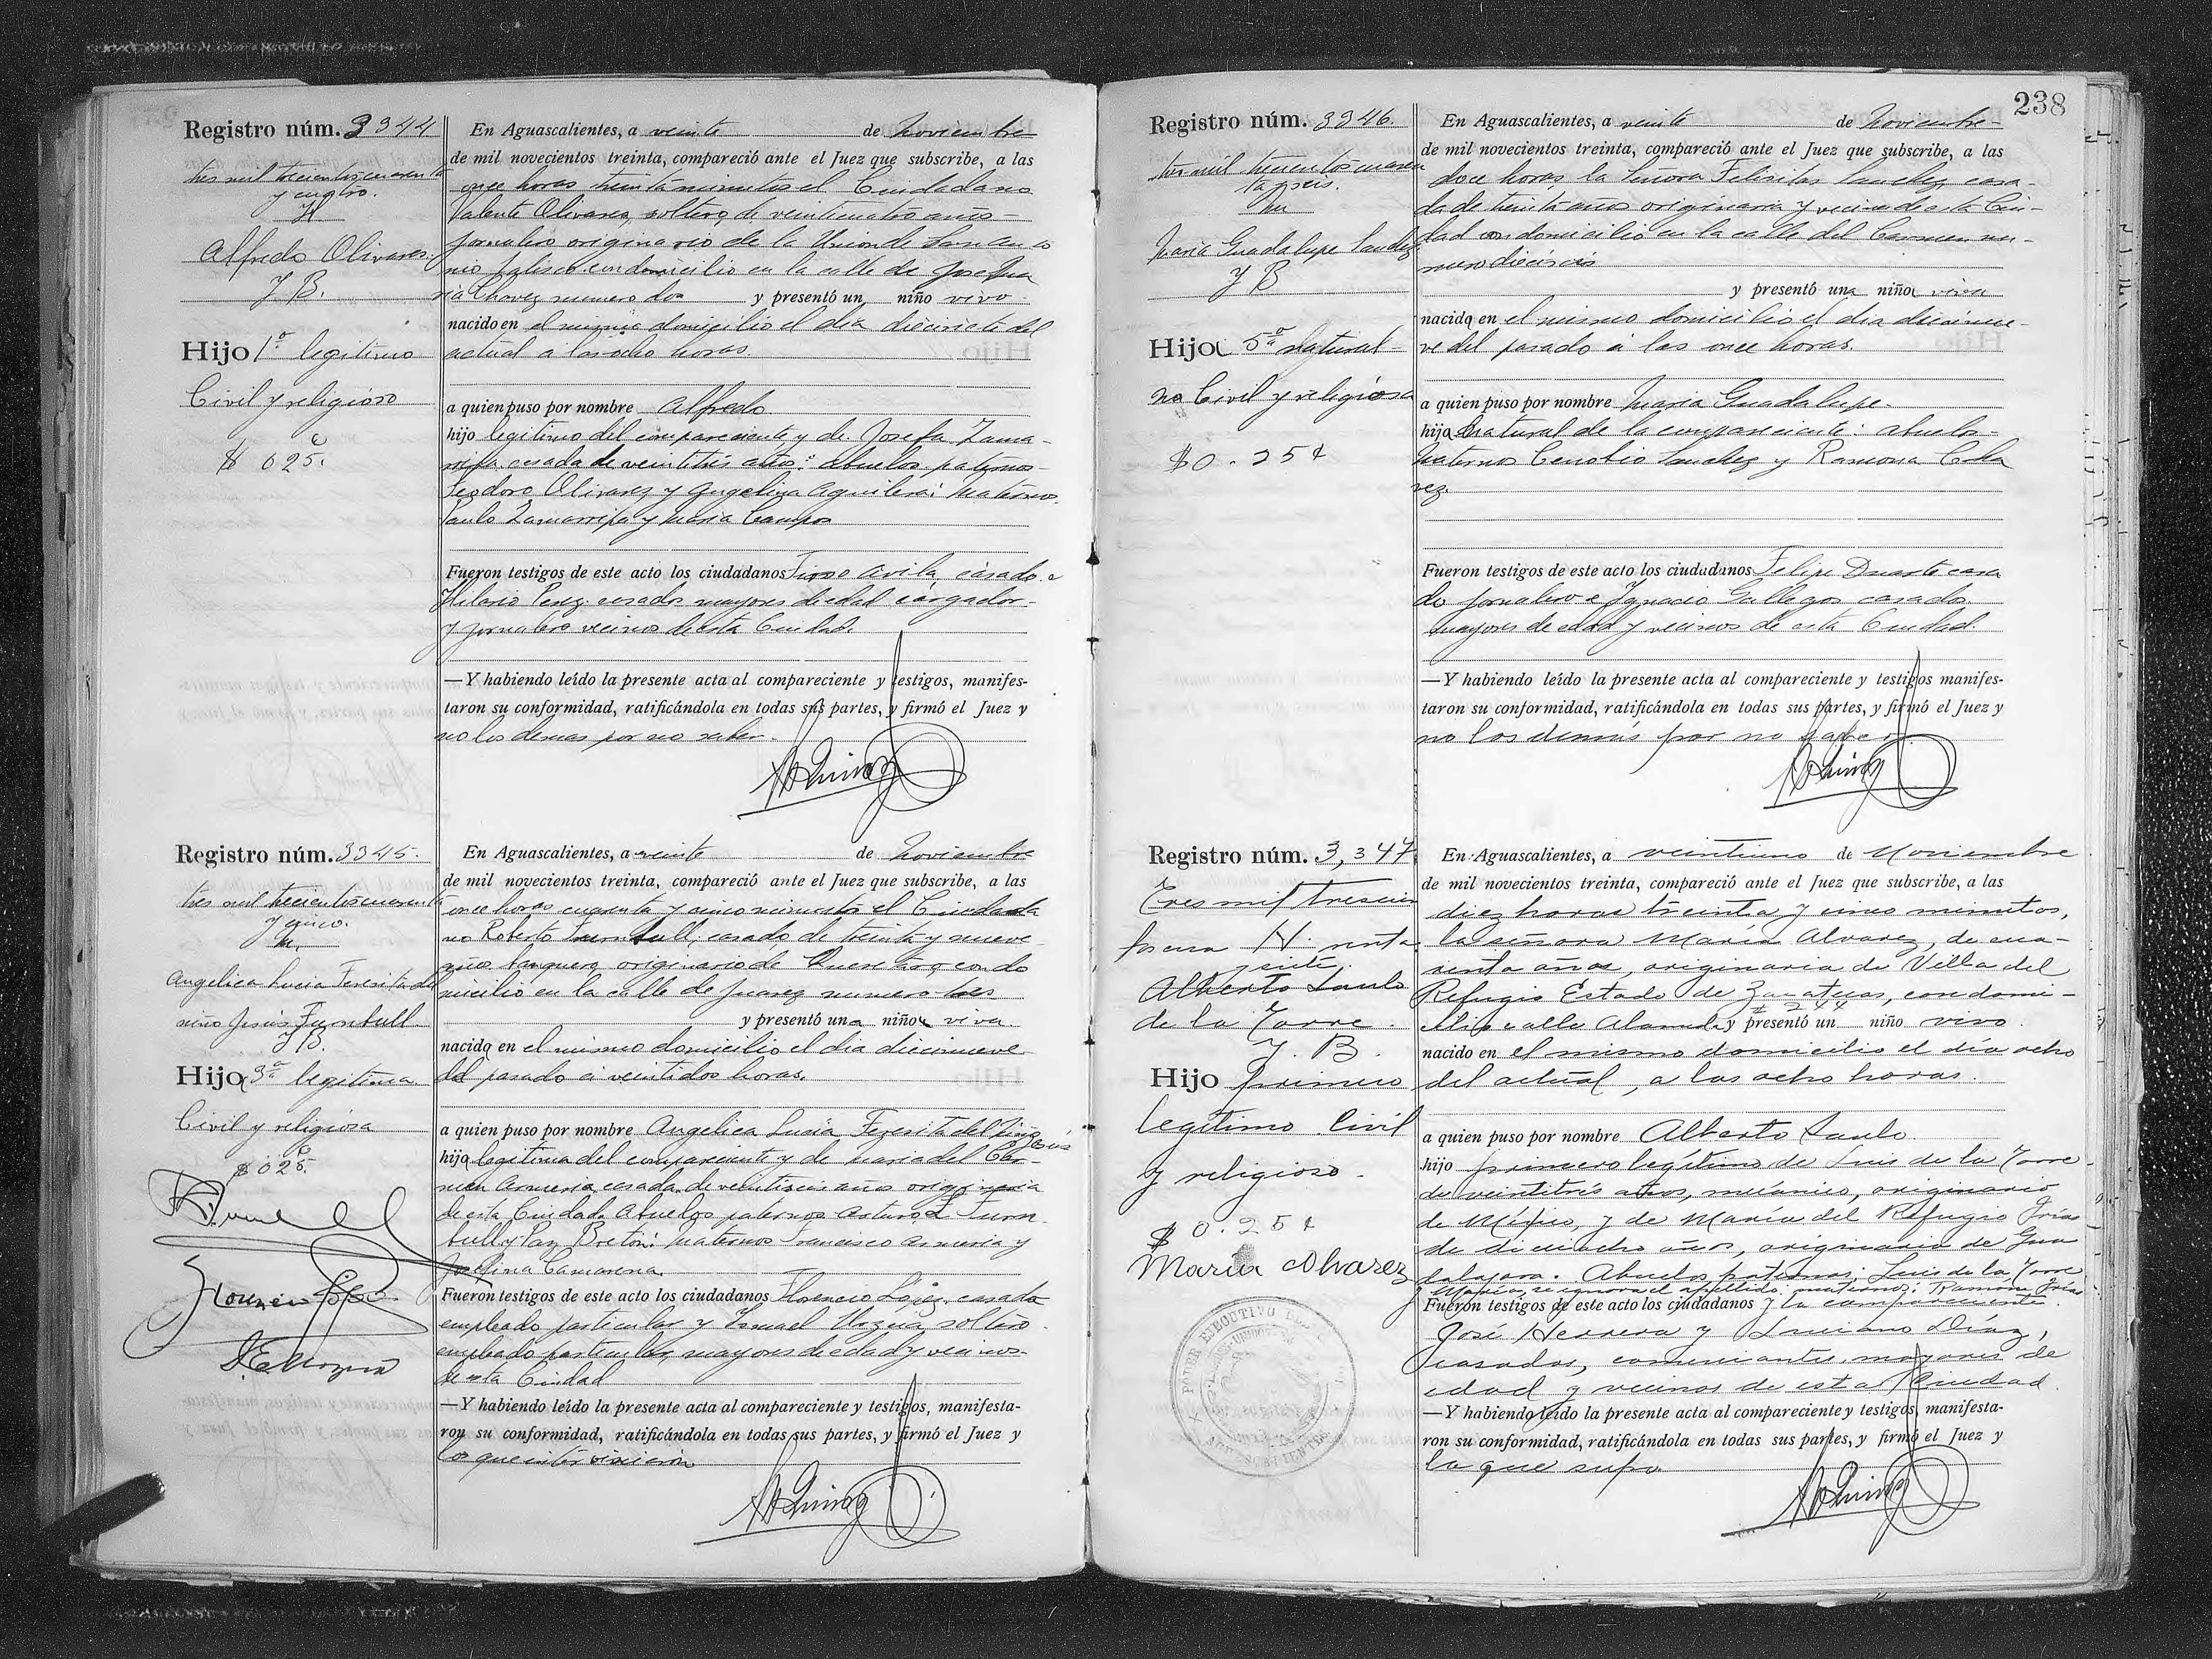 Registro núm. 3344
tres mil trescientos cuarenta
y cuatro.
H
Alfredo Olivares.
Y B.
Hijo 1º legitimo
Civil y religioso
$ 025.
En Aguascalientes, a veinte de Noviembre
de mil novecientos treinta, compareció ante el Juez que subscribe, a las
once horas treinta minutos el Ciudadano
Valente Olivares, soltero, de veinticuatro años
jornalero originario de la Union de San Anto
nio Jalisco con domicilio en la calle de Jose Ma
ria Chavez numero dos y presentó un niño vivo
nacido en el mismo domicilio el dia diecisiete del
actual a las ocho horas.
a quien puso por nombre Alfredo
hijo legitimo del compareciente y de Josefa Zama-
rripa casada de veintitrés años: abuelos paternos
Teodoro Olivarez y Angelina Aguilera: Maternos
Paulo Zamarripa y Maria Campos
Fueron testigos de este acto los ciudadanos Avila, casado e
Hilario Perez casado mayores de edad cargador
y jornalero vecinos de esta Ciudad.
—Y habiendo leído la presente acta al compareciente y testigos, manifes-
taron su conformidad, ratificándola en todas sus partes, y firmó el Juez y
no los demas por no saber.
Registro núm. 3345.
tres mil trescientos cuarenta
y cinco.
M.
Angelica Lucia Teresita del
niño Jesús Turnbull.
Y B.
Hija 3ª legitima
Civil y religiosa
$ 025.
En Aguascalientes, a veinte de Noviembre
de mil novecientos treinta, compareció ante el Juez que subscribe, a las
once horas cuarenta y cinco minutos el Ciudada
no Roberto Turnbull, casado, de treinta y nueve
años banquero, originario de Queretaro, con do
micilio en la calle de Juarez numero tres
y presentó una niña viva
nacida en el mismo domicilio el dia diecinueve
del pasado a veintidos horas.
a quien puso por nombre Angelica Lucia Teresita del Niño Jesús
hija legitima del compareciente y de Maria del Car-
men Armeria casada de veintiseis años originaria
de esta Ciudad. Abuelos paternos Arturo L Turn
bull y Paz Breton: Maternos Francisco Armeria y
Josefina Camarena.
Fueron testigos de este acto los ciudadanos Florencio López, casado
empleado particular y Ismael Unzua soltero
empleado particular, mayores de edad y vecinos
de esta Ciudad
—Y habiendo leído la presente acta al compareciente y testigos, manifesta-
ron su conformidad, ratificándola en todas sus partes, y firmó el Juez y
los que intervinieron
238
Registro núm. 3346.
tres mil trescientos cuaren
ta y seis.
M
Maria Guadalupe Sanchez
Y B
Hija 5ª natural
no Civil y religiosa
$0.25¢
En Aguascalientes, a veinte de Noviembre
de mil novecientos treinta, compareció ante el Juez que subscribe, a las
doce horas, la Señora Felisitas Sanchez casa-
da de treinta años originaria y vecina de esta Ciu-
dad con domicilio en la calle del Carmen nu-
mero dieciseis
y presentó una niña viva
nacida en el mismo domicilio el dia diecinue-
ve del pasado a las once horas.
a quien puso por nombre Maria Guadalupe.
hija natural de la compareciente: abuelos
maternos Cenobio Sanchez y Ramona Cha
vez.
Fueron testigos de este acto los ciudadanos Felipe Duarte casa
do jornalero e Ignacio Gallegos casados
mayores de edad y vecinos de esta Ciudad.
—Y habiendo leído la presente acta al compareciente y testigos manifes-
taron su conformidad, ratificándola en todas sus partes, y firmó el Juez y
no los demás por no saber.
Registro núm. 3,347
Tres mil trescien
tos cua H renta
y siete.
Alberto Saulo
de la Torre.
Y. B.
Hijo primero
legítimo Civil
y religioso.
$ 0.25¢
Maria Alvarez
PODER EJECUTIVO DEL
AGUASCALIENTES
En Aguascalientes, a veintiuno de Noviembre
de mil novecientos treinta, compareció ante el Juez que subscribe, a las
diez horas treinta y cinco minutos,
la señora María Alvarez, de cua-
renta años, originaria de Villa del
Refugio Estado de Zacatecas, con domi-
cilio calle Alameda # 244 y presentó un niño vivo.
nacido en el mismo domicilio el día ocho
del actual, a las ocho horas.
a quien puso por nombre Alberto Saulo.
hijo primero legítimo de Luis de la Torre
de veintitrés años, mecánico, originario
de México, y de María del Refugio Frías
de dieciocho años, originaria de Gua
dalajara. Abuelos paternos: Luis de la Torre
y María, se ignora el apellido. maternos: Ramón Frías
Fueron testigos de este acto los ciudadanos y la compareciente.
José Herrera y Luciano Díaz,
casados, comerciantes, mayores de
edad y vecinos de esta Ciudad.
—Y habiendo leído la presente acta al compareciente y testigos, manifesta-
ron su conformidad, ratificándola en todas sus partes, y firmó el Juez y
la que supo